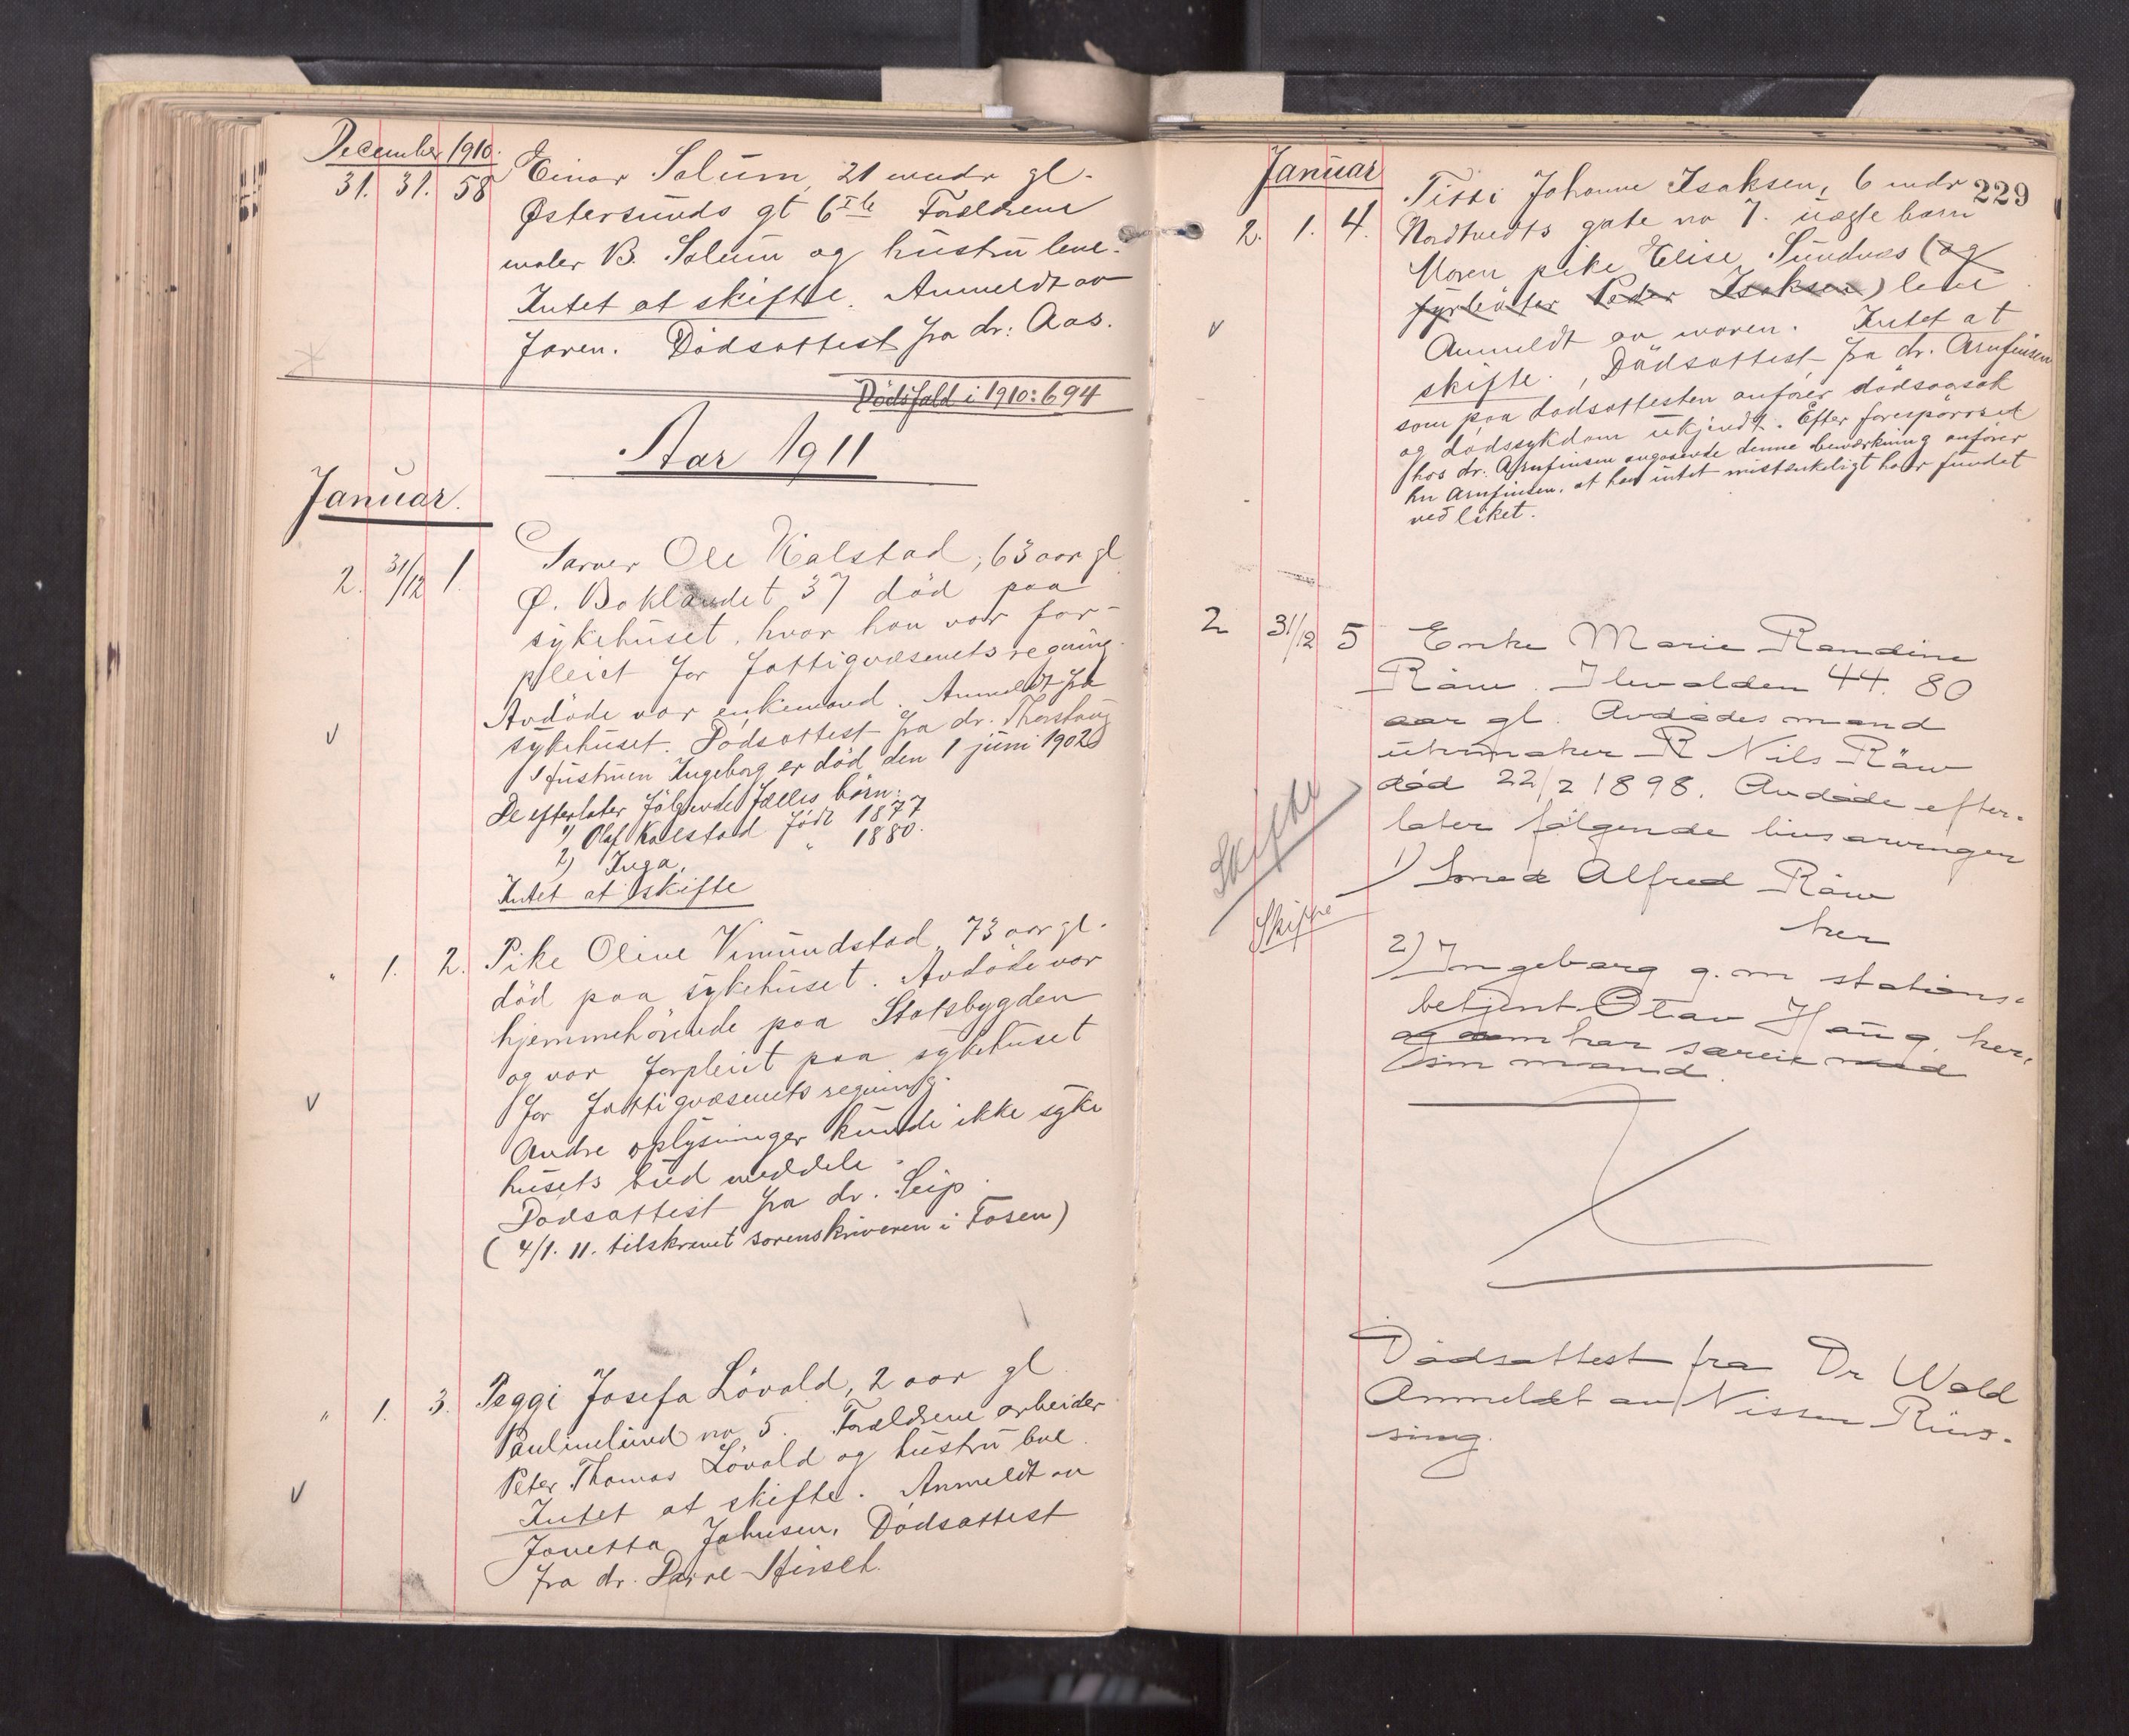 December 1910.
31. 31. 58 Einar Solum, 21 mndr gl.
Östersunds gt 6 Forældrene
maler B. Solum og hustru leve.
Intet at skifte. Anmeldt av
faren. Dödsattest fra dr: Aas.
Dödsfald i 1910: 694
Aar 1911
Januar.
2. 31/12 1. Garver Ole Kalstad, 63 aar gl
Ö. Baklandet 37 död paa
sykehuset, hvor han var for-
pleiet for fattigvæsenets regning.
Avdöde var enkemand. Anmeldt fra
sykehuset. Dödsattest fra dr.
Hustruen Ingeborg er död den 1 juni 1902
De efterlater fölgende fælles börn:
1) Olaf Kalstad född 1877
2) Inga, " 1880.
Intet at skifte
" 1. 2. Pike Oline Vimundstad, 73 aar gl.
död paa sykehuset. Avdöde var
hjemmehörende paa Statsbygden
og var forpleiet paa sykehuset
for fattigvæsenets regning.
Andre oplysninger kunde ikke syke
husets bud meddele.
Dödsattest fra dr. Seip.
(4/1. 11. tilskrevet sorenskriveren i Fosen)
" 1. 3. Peggi Josefa Lövold, 2 aar gl
Paulinelund no 5. Forældrene arbeider
Peter Thomas Lövold og hustru leve.
Intet at skifte. Anmeldt av
Jonetta Johnsen. Dödsattest
fra dr. Darre-Hirsch.
Januar
229
2. 1. 4. Tissi Johanne Isaksen, 6 mdr
Nordtvedts gate no 7. uægte barn
Moren pike Elise Sundnes (og
fyrböter Peder Isaksen) leve
Anmeldt av moren. Intet at
skifte. Dödsattest fra dr. Arnfinsen
som paa dödsattesten anförer dödsaarsak
og dödssykdom ukjendt. Efter forespörsel
hos dr. Arnfinsen angaaende denne bemærkning anförer
hr Arnfinsen, at han intet mistænkeligt har fundet
ved liket.
2 31/12 5 Enke Marie Randine
Räw. Ilevolden 44. 80
aar gl. Avdödes mand
uhrmaker R Nils Räw
död 22/2 1898. Avdöde efter-
later fölgende livsarvinger
Skifte
1) Smed Alfred Räw
her
Skifte
2) Ingeborg g. m stations-
betjent Olav Haug, her,
og som har særeie med
sin mand.
Dödsattest fra Dr Wold
Anmeldt av Nissen